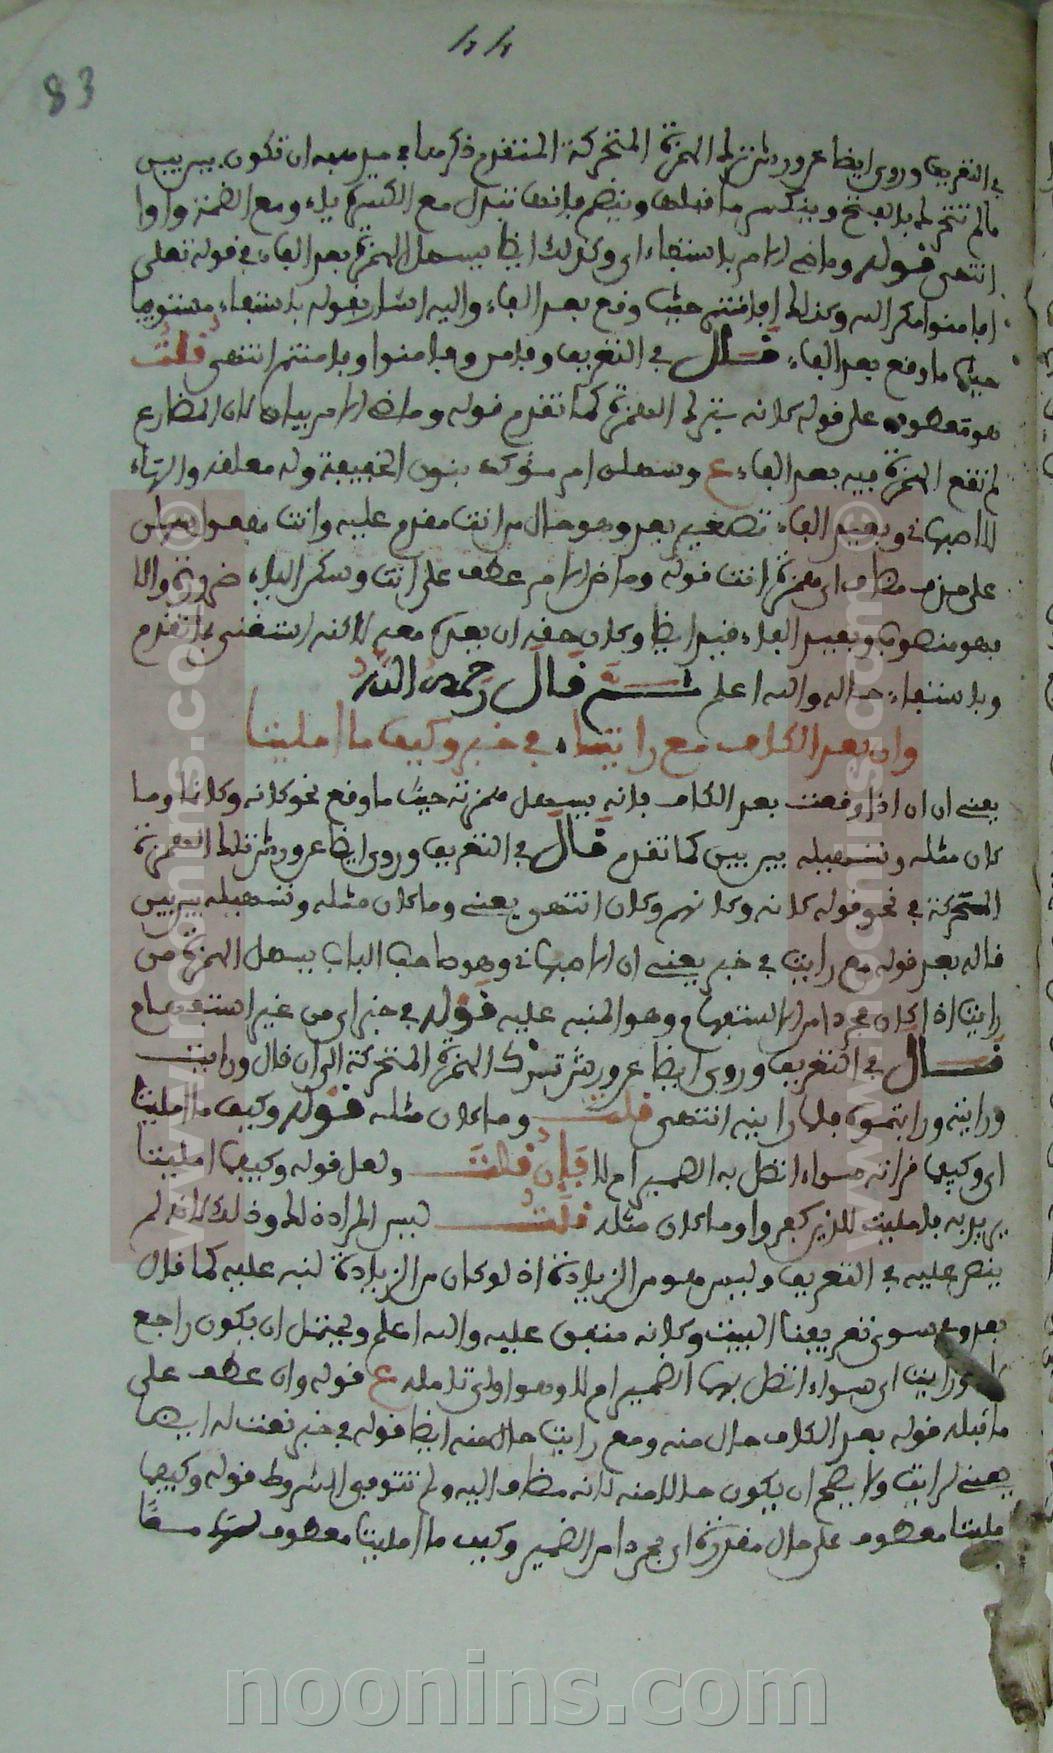 44
83
في التعريف وروى ايضا عن ورش ترك الهمزة المتحركة المتقدم ذكرها
ما لم تتحرك بالفتح وينكسر ما قبلها وينضم فانها تبدل مع الكسرة ياء ومع الضمة واوا
انتهى قوله وماضي الامر باستيفاء اي وكذلك ايضا يسهل الهمزة بعد الفاء في قوله تعلى
افامنوا مكر الله وكذلك افامنتم حيث وقع بعد الفاء واليه اشار بقوله باستيفاء مستوفيا
حيث ما وقع بعد الفاء قال في التعريف وفامن وفامنوا وفامنتم انتهى قلت
هو معطوف على قوله كانه بترك الهمزة كما تقدم قوله وماضي الامر بيان لان المضارع
لم تقع الهمزة فيه بعد الفاء ع وسهلن امر مؤكد بنون الخفيفة وله معلقه والهاء
للاصبهاني وبعيد الفاء تصغير بعد وهو حال من انت مقدم عليه وانت مفعول سهلن
على حذف مضاف اي همزة انت قوله وماضي الامر عطف على انت وسكن الياء ضرورة والا
فهو منصوب وبعيد الفاء قيد ايضا وكان حقه ان يعيده معه لاكنه استغنى بما تقدم
وباستيفاء حال والله اعلم ثم قال رحمه الله
وان بعد الكاف مع رايتا في خبر وكيف ما املينا
يعني ان ان اذا وقعت بعد الكاف فانه يسهل همزته حيث ما وقع نحو كانه وكانها وما
كان مثله وتسهيله بين بين كما تقدم قال في التعريف وروى ايضا عن ورش ترك الهمزة
المتحركة في نحو قوله كانه وكانهم وكان انتهى يعني وما كان مثله وتسهيله بين بين
قاله بعد قوله مع رايت في خبر يعني ان الاصبهاني وهو صاحب الباب يسهل الهمزة من
رايت اذا كان مجردا من الاستفهام وهو المنبه عليه قوله في خبر اي من غير استفهام
قال في التعريف وروى ايضا عن ورش ترك الهمزة المتحركة الى ان قال ورايت
ورايته ورايتموه فلما راينه انتهى قلت وما كان مثله قوله وكيف ما املينا
اي وكيف قراته سواء اتصل به الضمير ام لا فان قلت ولعل قوله وكيف املينا
يريد به فامليت للذين كفروا وما كان مثله قلت ليس المراد ذلك وذلك لانه لم
ينص عليه في التعريف وليس هو من الزيادة اذ لو كان من الزيادة لنبه عليه كما قال
بعد وعن سوى تعريفنا البيت وكانه متفق عليه والله اعلم ويحتمل ان يكون راجع
ورايت اي سواء اتصل بها الضمير ام لا وهو اولى تامله ع قوله وان عطف على
ما قبله قوله بعد الكاف حال منه ومع رايت حال منه ايضا قوله في خبر نعت له ايضا
يعني لرايت ولا يصح ان يكون حالا منه لانه مضاف اليه ولم تتوفى الشروط قوله وكيف
ملينا معطوف على حال مقدرة اي مجردا من الضمير وكيف ما املينا معطوف
www.noonins.com ©
www.noonins.com ©
noonins.com